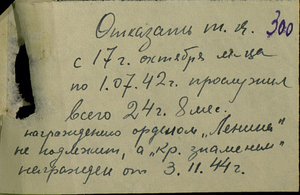 Отказать т. к. 300
с 17 г. октября м-ца
по 1.07.42 г. прослужил
всего 24 г. 8 мес.
награждению орденом „Ленина"
не подлежит, а „Кр. знаменем"
награжден от 3.11.44 г.